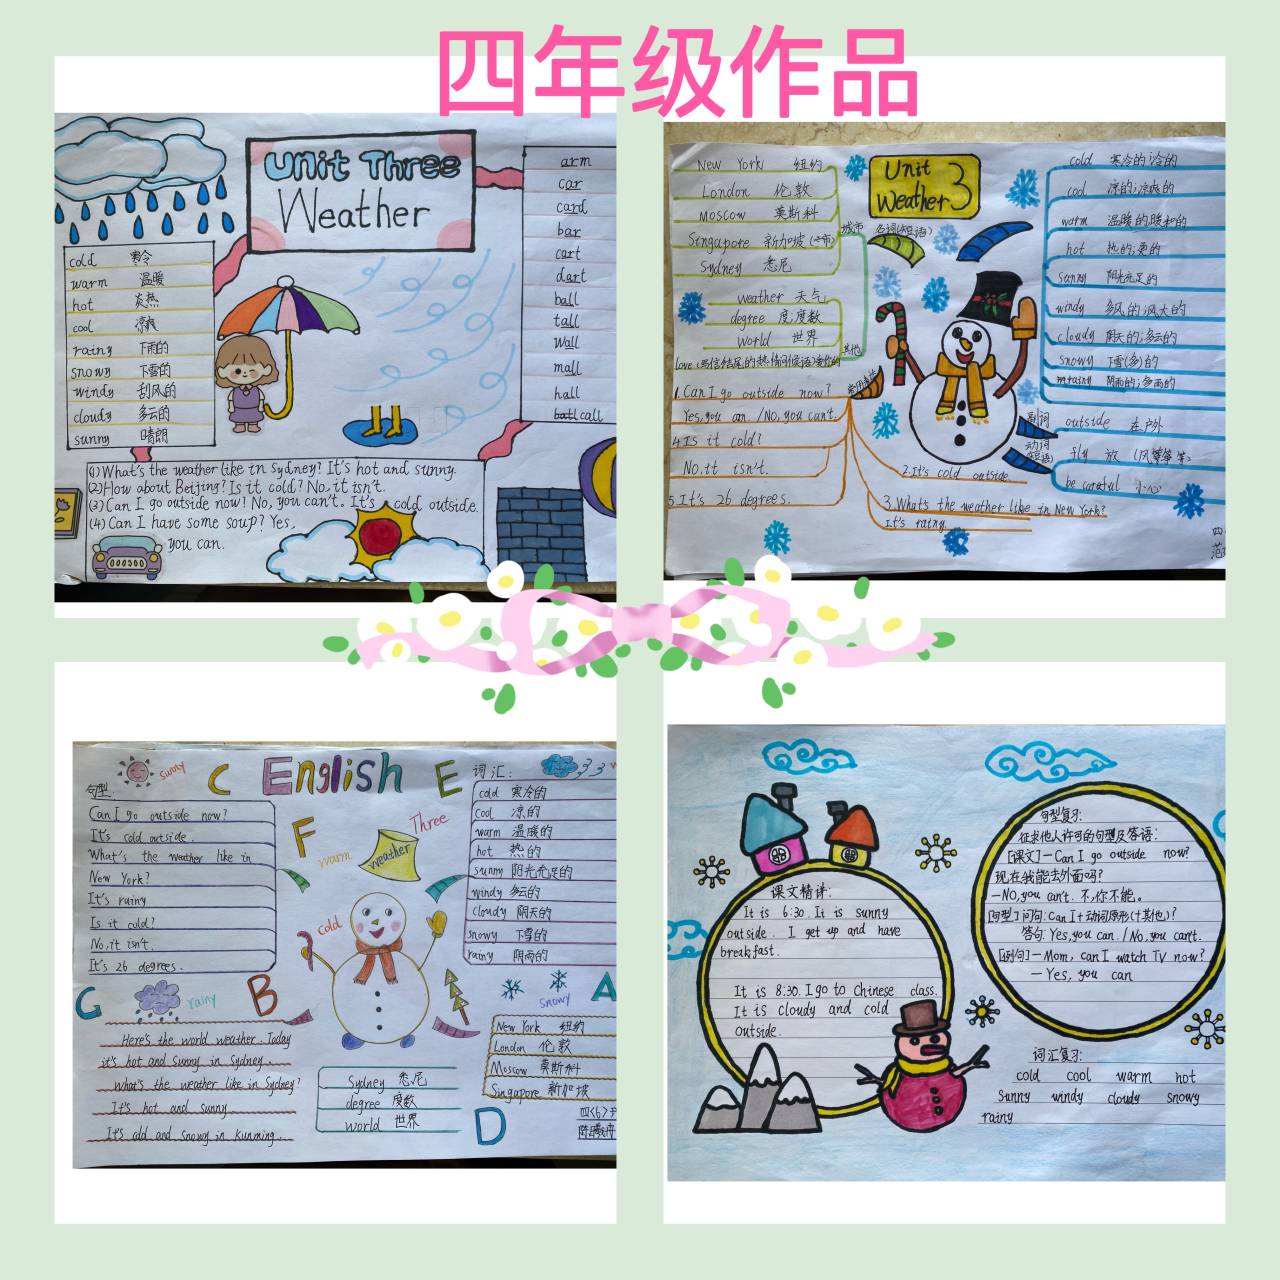 四年级作品
Unit Three
Weather
cold 寒冷
warm 温暖
hot 炎热
cool 凉爽
rainy 下雨的
snowy 下雪的
windy 刮风的
cloudy 多云的
sunny 晴朗
arm
car
card
bar
cart
dart
ball
tall
wall
mall
hall
call
(1) What's the weather like in Sydney? It's hot and sunny.
(2) How about Beijing? Is it cold? No, it isn't.
(3) Can I go outside now! No, you can't. It's cold outside.
(4) Can I have some soup? Yes,
you can.
Unit 3
Weather
New York 纽约
London 伦敦
Moscow 莫斯科
Singapore 新加坡
Sydney 悉尼
城市
名词(短语)
weather 天气
degree 度;度数
world 世界
其他
1. Can I go outside now?
Yes, you can. / No, you can't.
4. Is it cold?
No, it isn't.
5. It's 26 degrees.
2. It's cold outside.
3. Whats the weather like in New York?
It's rainy.
cold 寒冷的;冷的
cool 凉的;凉爽的
warm 温暖的;暖和的
hot 热的;烫的
sunny 阳光充足的
windy 多风的;风大的
cloudy 阴天的;多云的
snowy 下雪(多)的
rainy 阴雨的;多雨的
副词
outside 在户外
动词
(短语)
fly 放(风筝等)
be careful 小心
sunny
C English E
句型:
Can I go outside now?
It's cold outside.
What's the weather like in
New York?
It's rainy
Is it cold?
No, it isn't.
It's 26 degrees.
F
warm
weather
Three
cold
词汇:
cold 寒冷的
cool 凉的
warm 温暖的
hot 热的
sunny 阳光充足的
windy 多云的
cloudy 阴天的
snowy 下雪的
rainy 阴雨的
G
rainy
B
snowy
A
Here's the world weather. Today
it's hot and sunny in Sydney.
What's the weather like in Sydney?
It's hot and sunny
It's cold and snowy in Kunming.
Sydney 悉尼
degree 度数
world 世界
New York 纽约
London 伦敦
Moscow 莫斯科
Singapore 新加坡
D
四(6)
课文精讲:
It is 6:30. It is sunny
outside. I get up and have
breakfast.
It is 8:30. I go to Chinese class.
It is cloudy and cold
outside.
句型复习:
征求他人许可的句型及答语:
[课文] — Can I go outside now?
现在我能去外面吗?
— No, you can't. 不,你不能。
[句型] 问句: Can I + 动词原形(+其他)?
答句: Yes, you can. / No, you can't.
[例句] — Mom, can I watch TV now?
— Yes, you can
词汇复习:
cold cool warm hot
sunny windy cloudy snowy
rainy